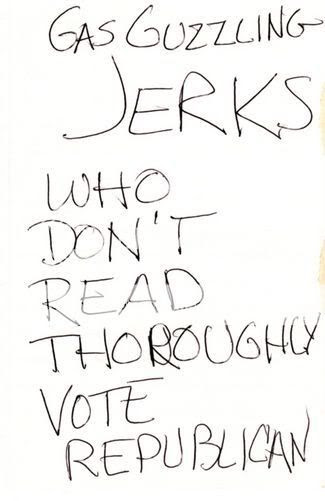 GAS GUZZLING
JERKS
WHO
DON'T
READ
THOROUGHLY
VOTE
REPUBLICAN